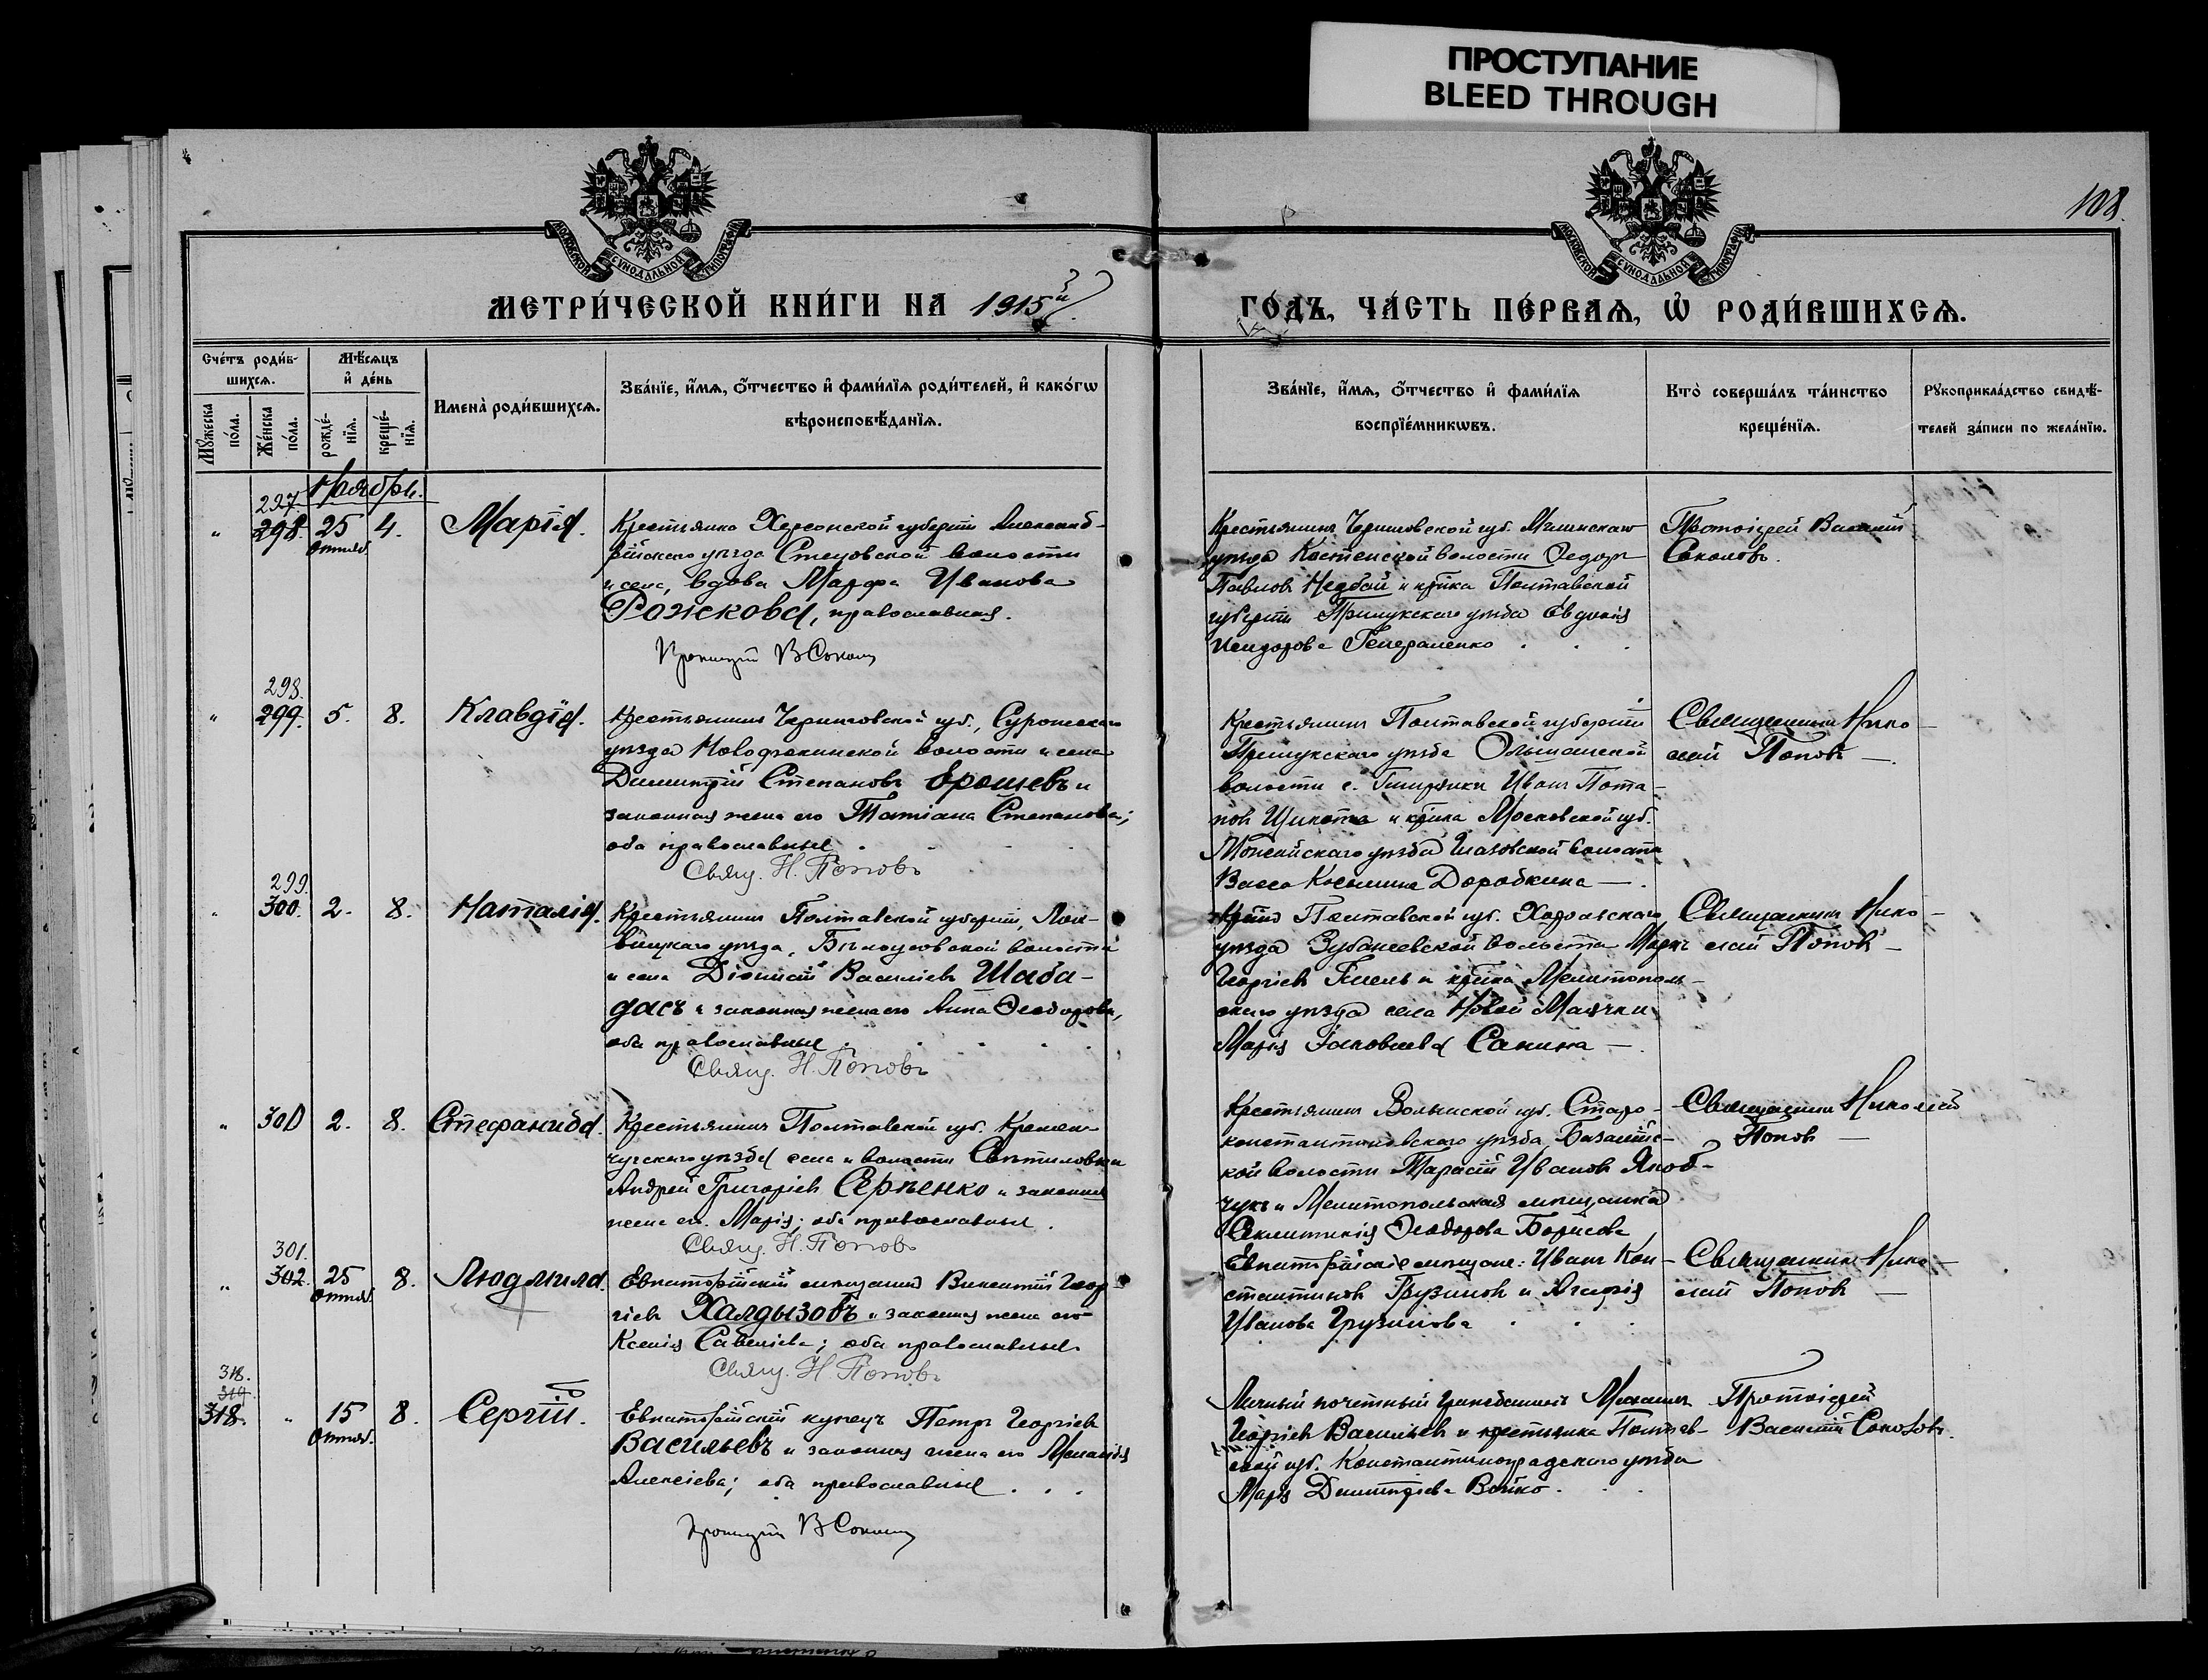 ПРОСТУПАНИЕ
BLEED THROUGH
108.
МОСКОВСКОЙ СѴНОДАЛЬНОЙ ТИПОГРАФІИ
МОСКОВСКОЙ СѴНОДАЛЬНОЙ ТИПОГРАФІИ
МЕТРИ́ЧЕСКОЙ КНИ́ГИ НА 1915й
ГО́ДЪ, ЧА́СТЬ ПЕ́РВАЯ, Ѡ РОДИ́ВШИХСЯ.
Сче́тъ роди́в-
шихся.
Мѣ́сяцъ
и де́нь
Мꙋ́жеска
по́ла.
Же́нска
по́ла.
рожде́-
нїя.
креще́-
нїя.
Имена̀ роди́вшихся.
Зва́нїе, и́мя, о́тчество и фами́лїя роди́телей, и како́гѡ
вѣроисповѣ́данїя.
Зва́нїе, и́мя, о́тчество и фами́лїя
воспрїе́мникѡвъ.
Кто̀ соверша́лъ та́инство
креще́нїя.
Рꙋкоприкла́дство свидѣ́-
телей за́писи по жела́нїю.
Ноябрь.
297.
298. 25 4. Марія.
Октяб.
Крестьянка Херсонской губерніи Александ-
рійскаго уѣзда Стецовской волости
и села, вдова Марфа Иванова
Рожскова, православная.
Протоіерей В Соколов
Крестьянинъ Черниговской губ. Мглинскаго
уѣзда Костенской волости Ѳедоръ
Павловъ Недбай и кр-ка Полтавской
губерніи Прилукскаго уѣзда Евдокія
Исидорова Генераленко
Протоіерей Василій
Соколовъ.
298.
299. 5. 8. Клавдія.
Крестьянинъ Черниговской губ., Суражскаго
уѣзда Новодрокинской волости и села
Димитрій Степановъ Ерошевъ и
законная жена его Татіана Степанова;
оба православные
Свящ. Н. Поповъ
Крестьянинъ Полтавской губерніи
Прилукскаго уѣзда Ольшанской
волости с. Гмырянки Иванъ Пота-
повъ Щикота и кр-ка Московской губ.
Можайскаго уѣзда волости
Васса Косьмина Доробкина —.
Священникъ Нико-
лай Поповъ —.
299.
300. 2. 8. Наталія.
Крестьянинъ Полтавской губерніи, Лох-
вицкаго уѣзда, Бѣлоусовской волости
и села Діонисій Василіевъ Шаба-
дасъ и законная жена его Анна Ѳеодорова,
оба православные
Свящ. Н. Поповъ
Кр-нъ Полтавской губ. Хорольскаго
уѣзда Зубаневской волости Маркъ
Георгіевъ и кр-ка Мелитополь-
скаго уѣзда села Новой Маячки
Марія Іаковлева Санина —.
Священникъ Нико-
лай Поповъ —
300 2. 8. Стефанида.
Крестьянинъ Полтавской губ. Кремен-
чугскаго уѣзда села и волости Святиловки
Андрей Григоріевъ Серпенко и законная
жена его Марія; оба православные.
Свящ. Н. Поповъ
Крестьянинъ Волынской губ. Старо-
константиновскаго уѣзда Базалійс-
кой волости Тарасій Ивановъ Якоб-
чукъ и Мелитопольская мѣщанка
Ѳеодорова Борисова
Священникъ Николай
Поповъ —
301.
302. 25 8. Людмила.
Октяб.
Евпаторійскій мѣщанинъ Викентій Геор-
гіевъ Халдызовъ и законная жена его
Ксенія Савеліева; оба православные
Свящ. Н. Поповъ
Евпаторійскіе мѣщане: Иванъ Кон-
стантиновъ Грузиновъ и Агафія
Иванова Грузинова
Священникъ Нико-
лай Поповъ —
318.
319.
318. 15 8. Сергій.
Октяб.
Евпаторійскій купецъ Петръ Георгіевъ
Васильевъ и законная жена его Меланія
Алексіева; оба православные . . .
Протоіерей В Соколов
Личный почетный гражданинъ Михаилъ
Георгіевъ Васильевъ и крестьянка Полтав-
ской губ. Константиноградскаго уѣзда
Марія Димитріева Бойко.
Протоіерей
Василій Соколовъ.